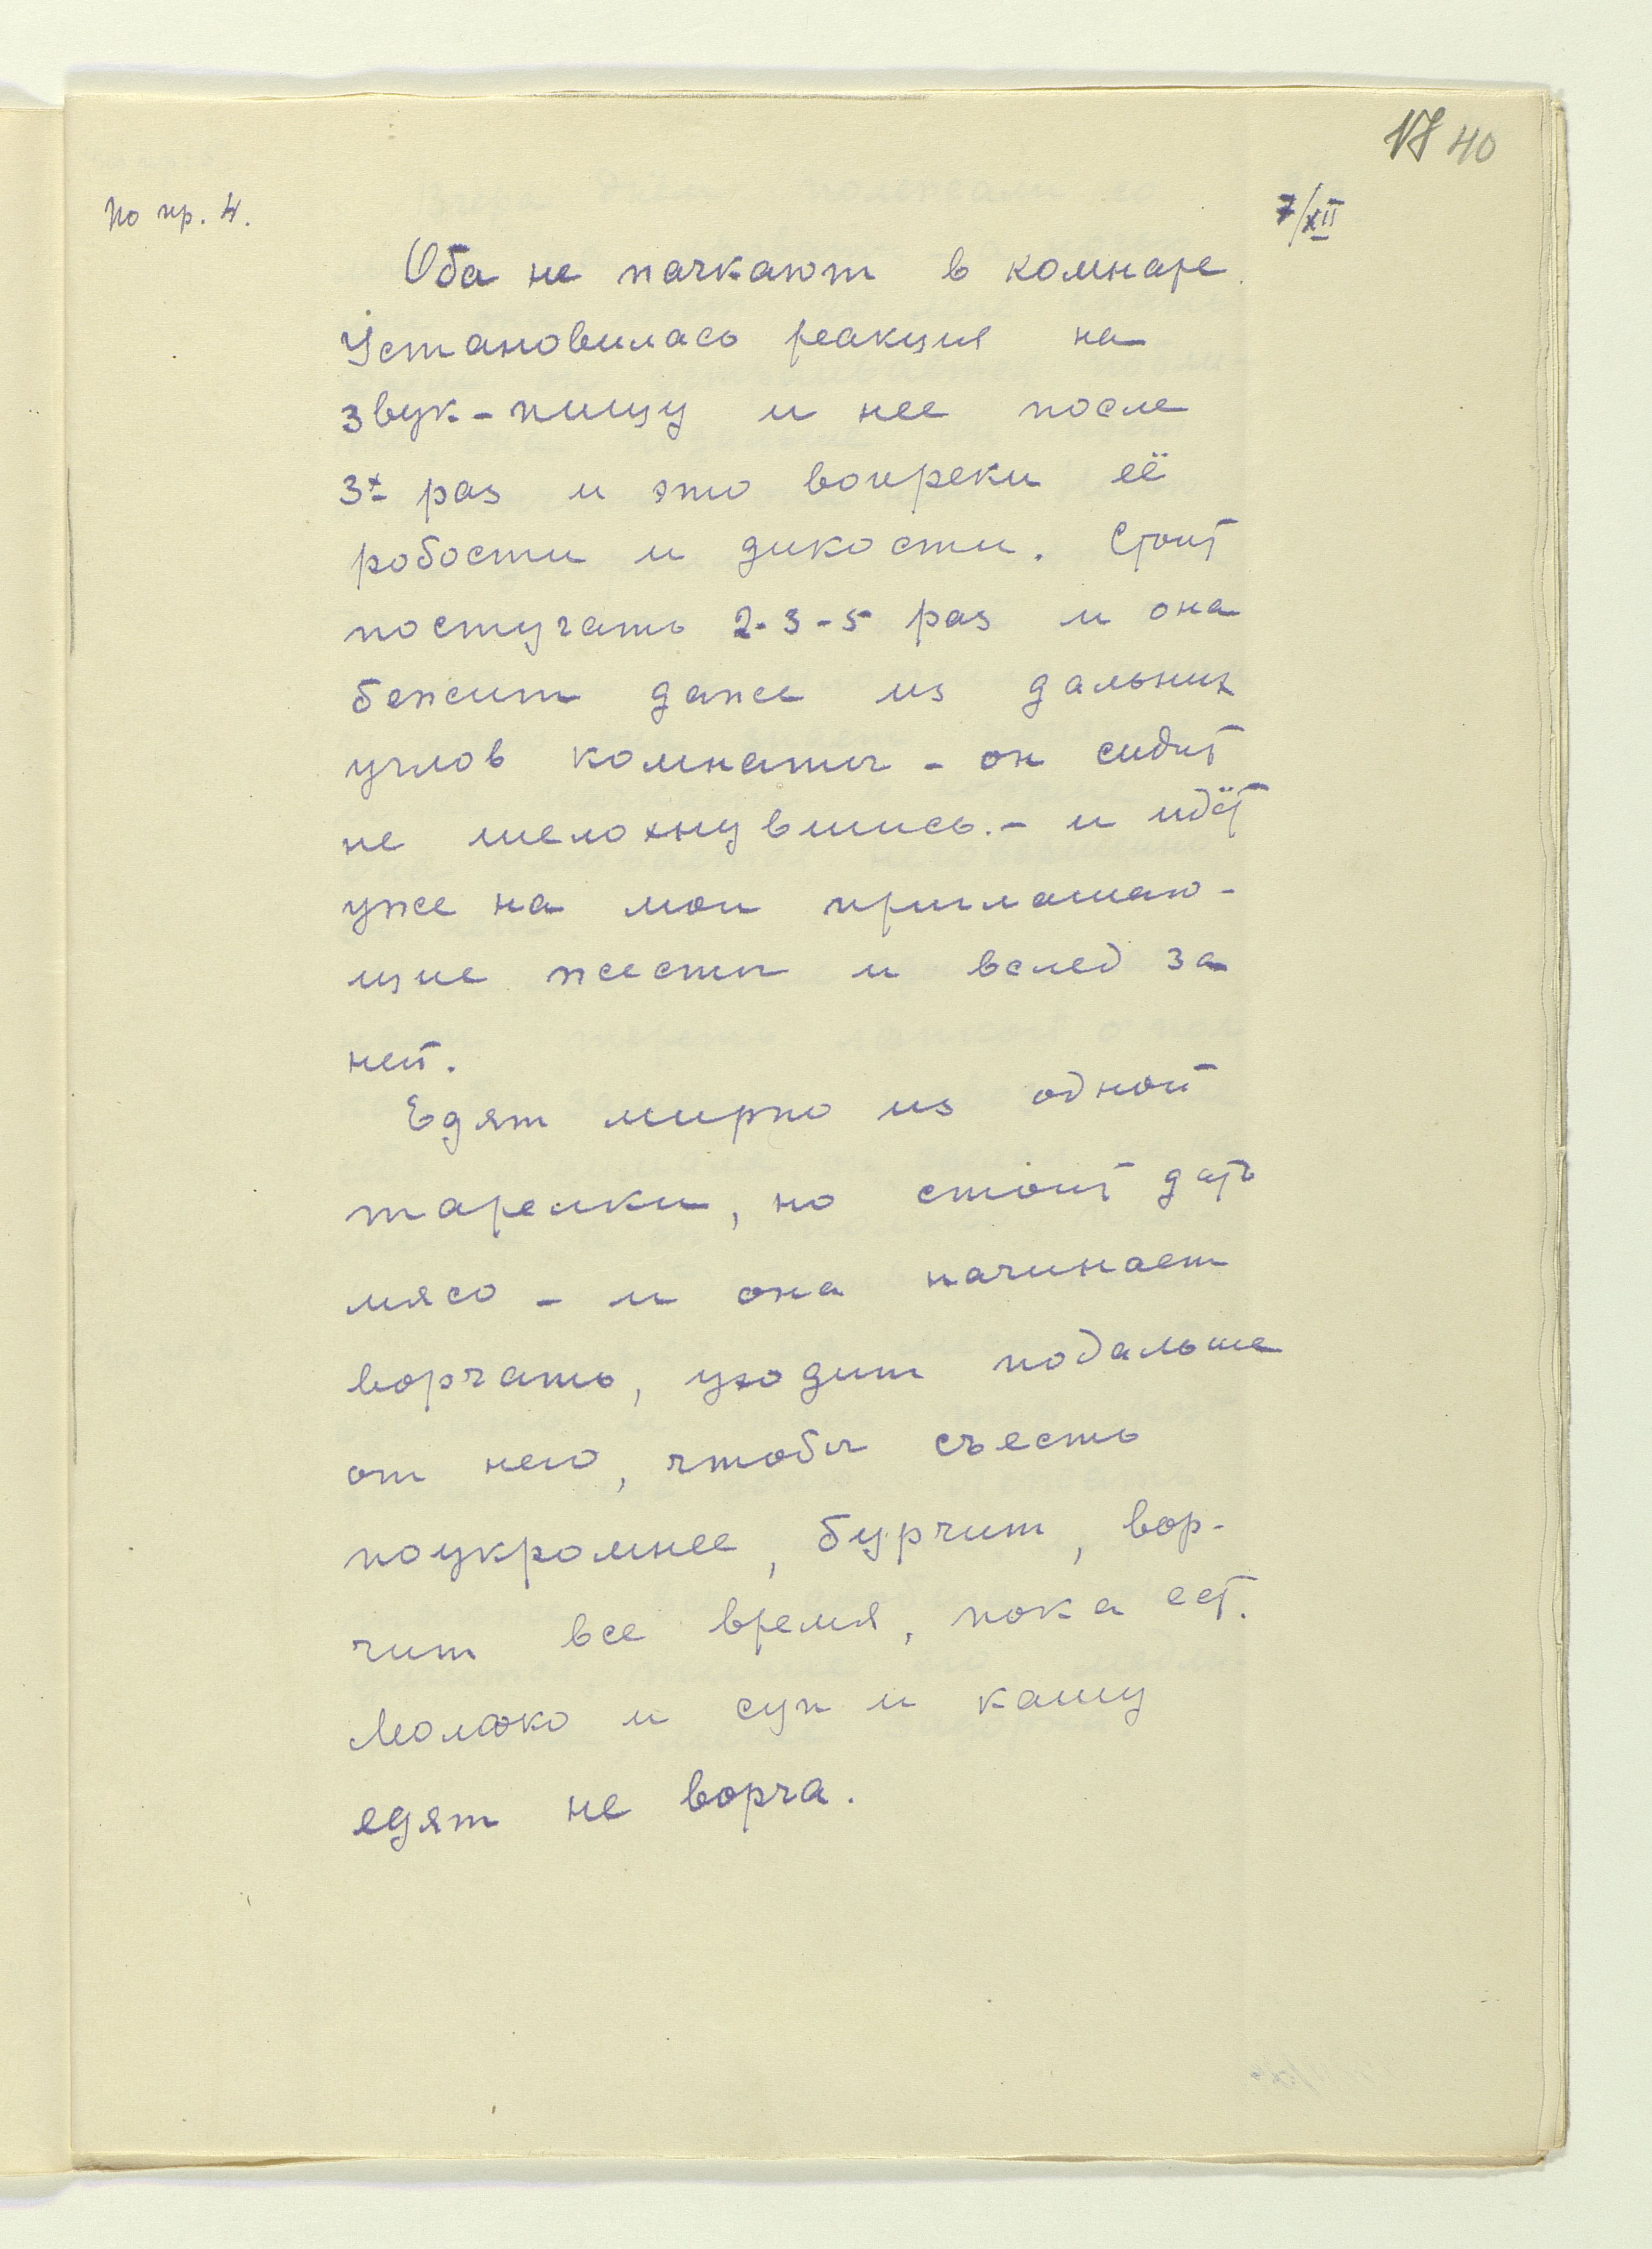 17 40
По пр. 4.
7/XII
Оба не пачкают в комнате.
Установилась реакция на
звук-пищу и нее после
3х раз и это вопреки её
робости и дикости. Стоит
постучать 2-3-5 раз и она
бежит даже из дальних
углов комнаты - он сидит
не шелохнувшись. - и идёт
уже на мои приглашаю-
щие жесты и вслед за
ней.
Едят мирно из одной
тарелки, но стоит дать
мясо - и она начинает
ворчать, уходит подальше
от него, чтобы съесть
поукромнее, бурчит, вор-
чит все время, пока ест.
Молоко и суп и кашу
едят не ворча.